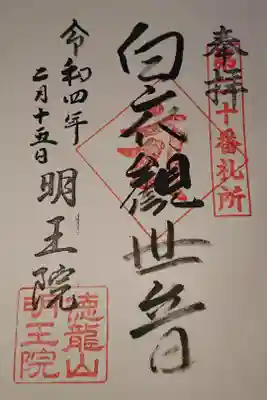 奉拝
十番札所
白衣觀世音
令和四年
二月十五日
明王院
徳龍山
明王院